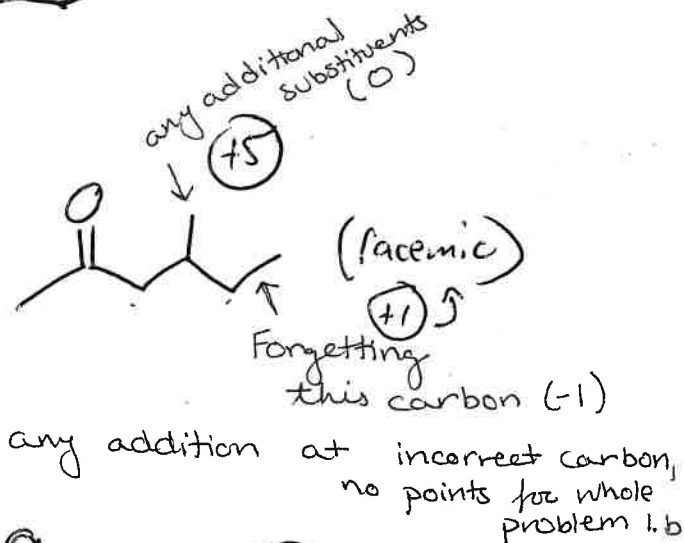 any additional
substituents
(0)
+5
O
(racemic)
+1
Forgetting
this carbon (-1)
any addition at incorrect carbon,
no points for whole
problem 1.b